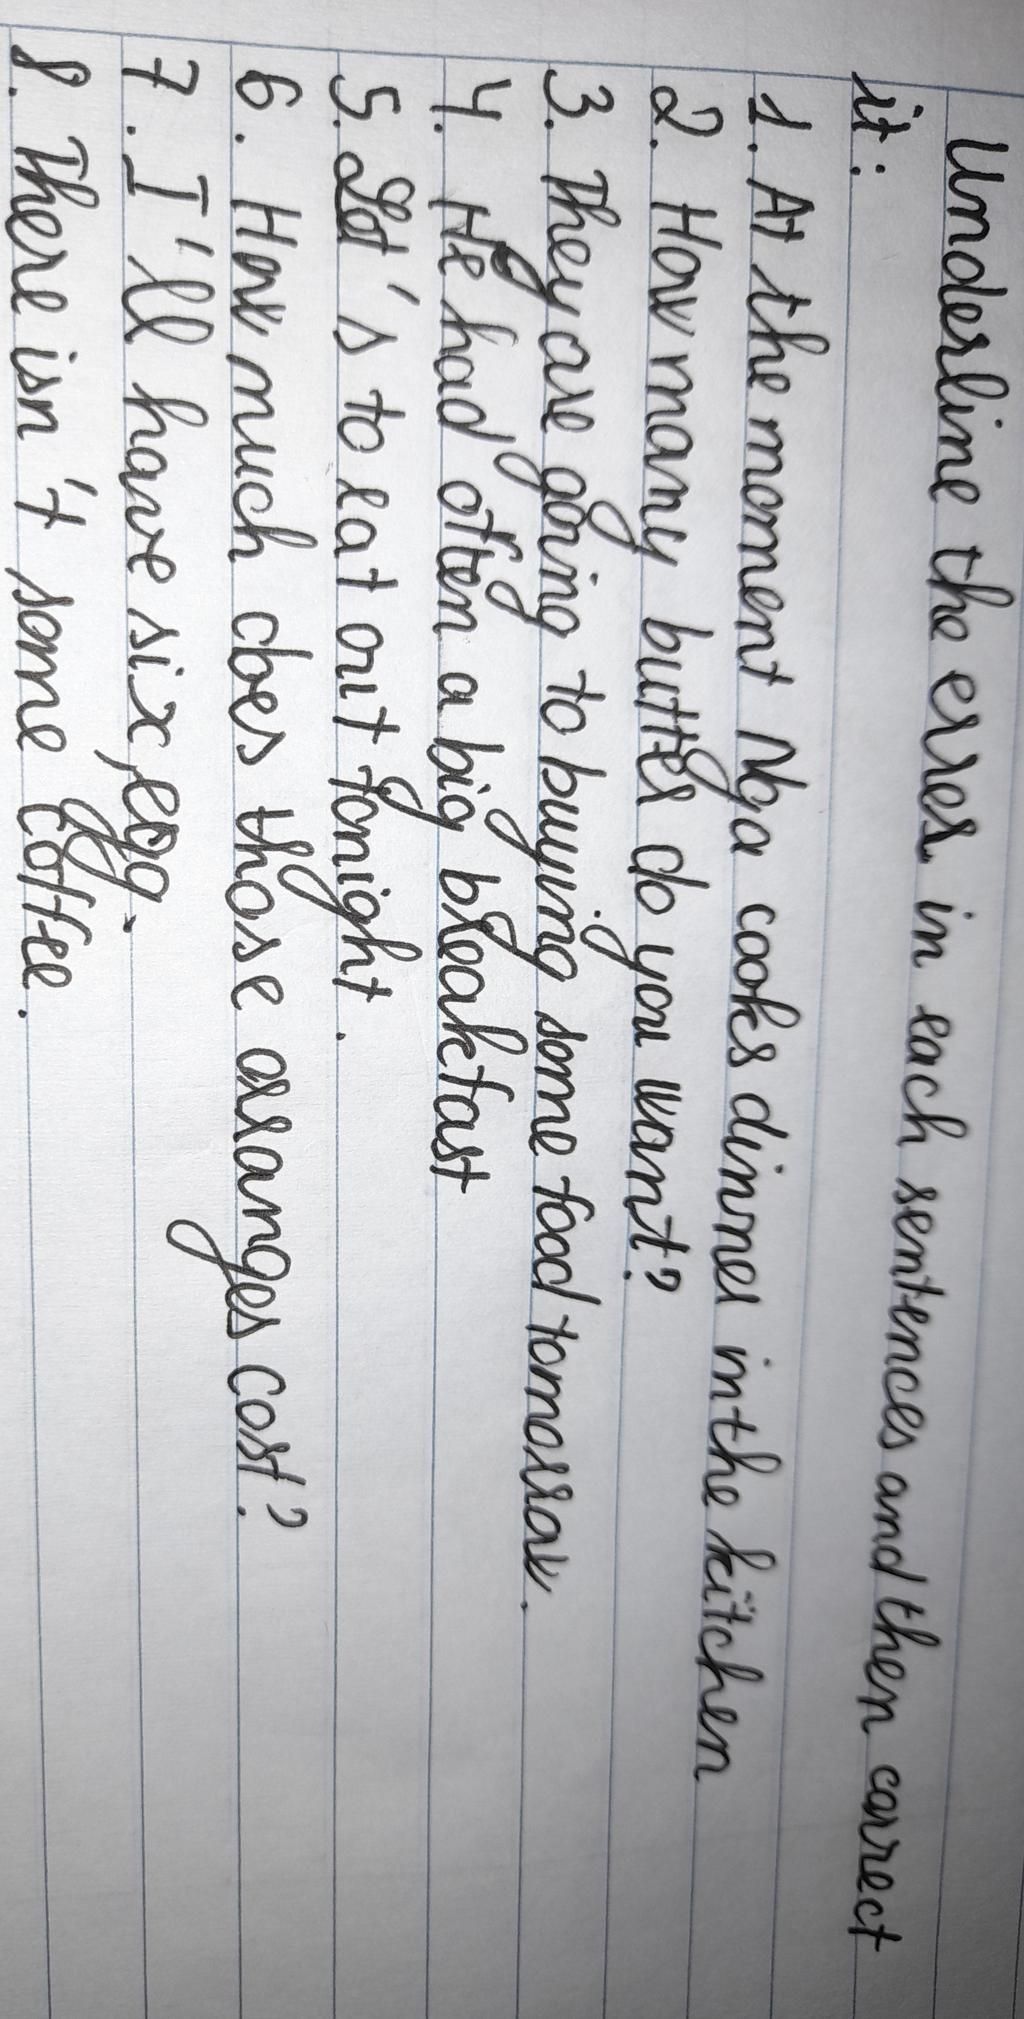 Underline the erres in each sentences and then correct
it:
1. At the moment Nga cooks dinner in the kitchen
2. How many butter do you want?
3. They are going to buying some food tomorrow.
4. He had often a big breakfast
5. Let's to eat out tonight.
6. How much does those oranges cost?
7. I'll have six egg.
8. There isn't some coffee.